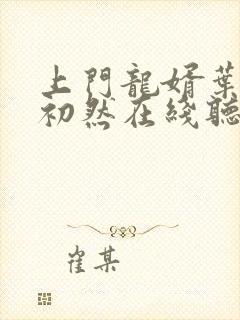 上門龍婿葉
初然在綫聽
崔某